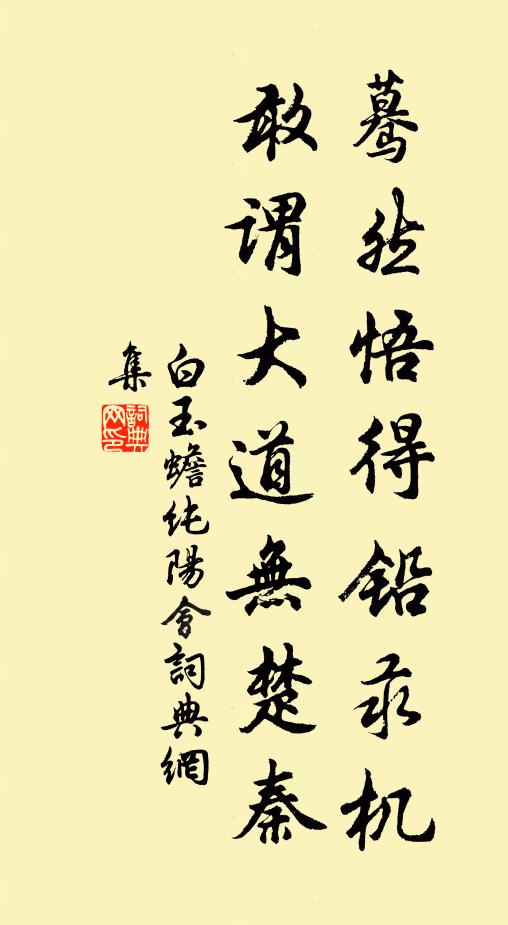 驀然悟得鉛汞机
敢謂大道無楚秦
白玉蟾純陽會詞典網
集
詞典網印